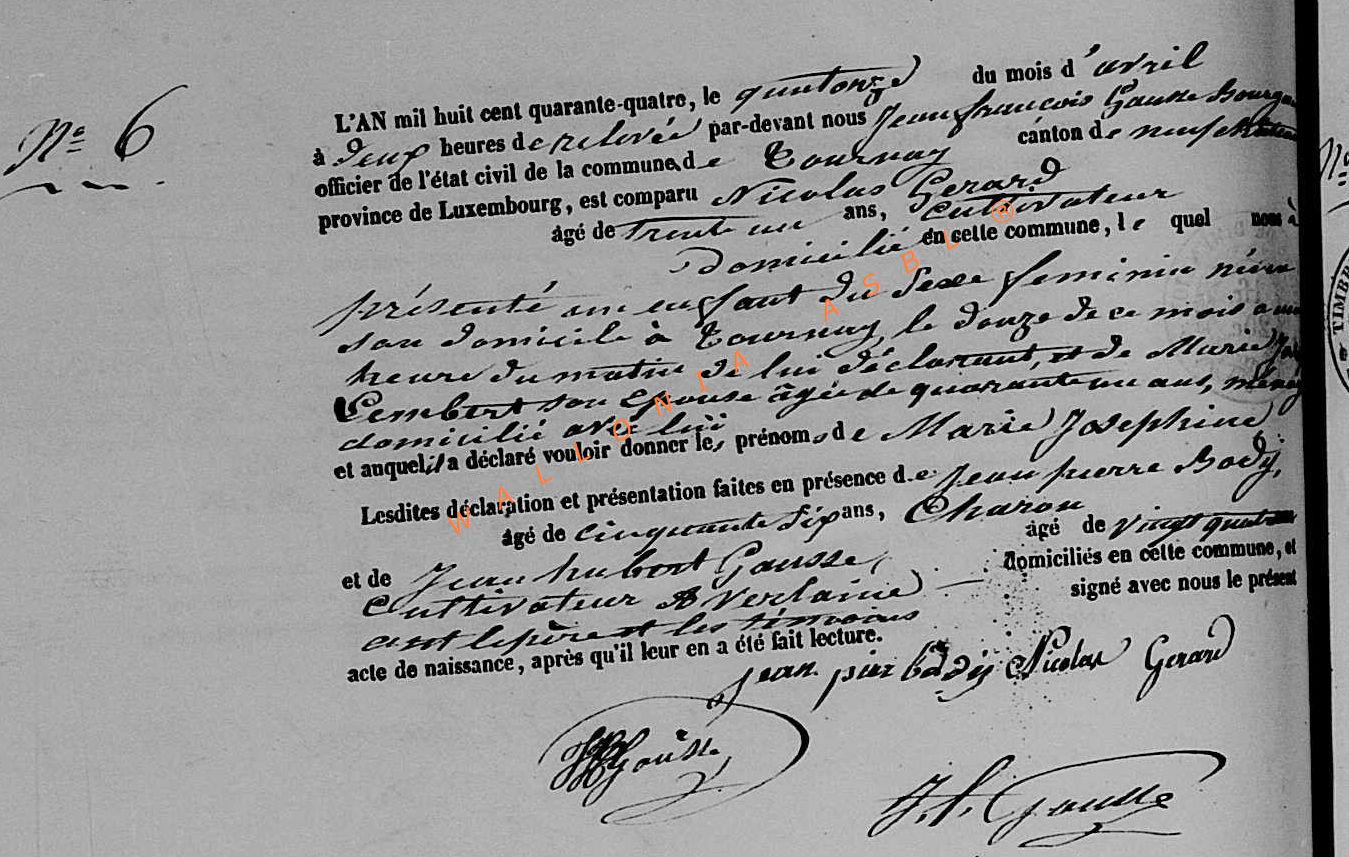 N° 6
L'AN mil huit cent quarante-quatre, le quatorze du mois d'avril
à deux heures de relevée par-devant nous Jean françois Gausse Bourgm
officier de l'état civil de la commune de Tournay canton de neufchateau
province de Luxembourg, est comparu Nicolas Gerard
âgé de Trente un ans, Cultivateur
Domicilié en cette commune, le quel nous à
présenté un enfant du sexe feminin née
son domicile à Tournay, le douze de ce mois a une
heure du matin de lui déclarant, et de Marie
Lembert son Epouse âgée de quarante un ans, ménag
domicilié avec lui
et auquel il a déclaré vouloir donner les prénoms de Marie Josephine
Lesdites déclaration et présentation faites en présence de Jean pierre Body,
âgé de cinquante six ans, Charon
et de Jean hubert Gausse, âgé de vingt quatre
Cultivateur A Verlaine domiciliés en cette commune, et
ont le père et les témoins signé avec nous le présent
acte de naissance, après qu'il leur en a été fait lecture.
jean pier body Nicolas Gerard
Gousse
J. f. Gausse
TIMBR
WALLONIA ASBL ®